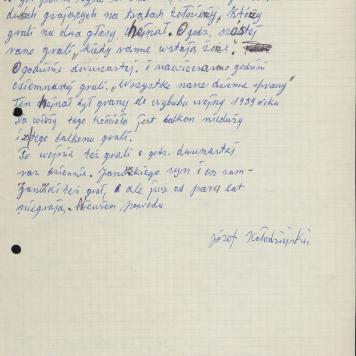 dwóch grających na trąbach żołnierzy, którzy
grali na dwa głosy hejnał. O godz. szóstej
rano grali „kiedy ranne wstają zorze".
O godzinie dwunastej, i na wieczór o godzinie
siemnastej grali, „wszystkie nasze dzienne sprawy"
Ten hejnał był grany do wybuhu wojny 1939 roku
Na wieży tego kościoła jest balkon nieduży
i z tego balkonu grali.
Po wojnie też grali o godz. dwunastej
raz dziennie. syn i on sam-
też grał, a ale już od paru lat
niegrają. Niewiem powodu
Józef Kołodziejski